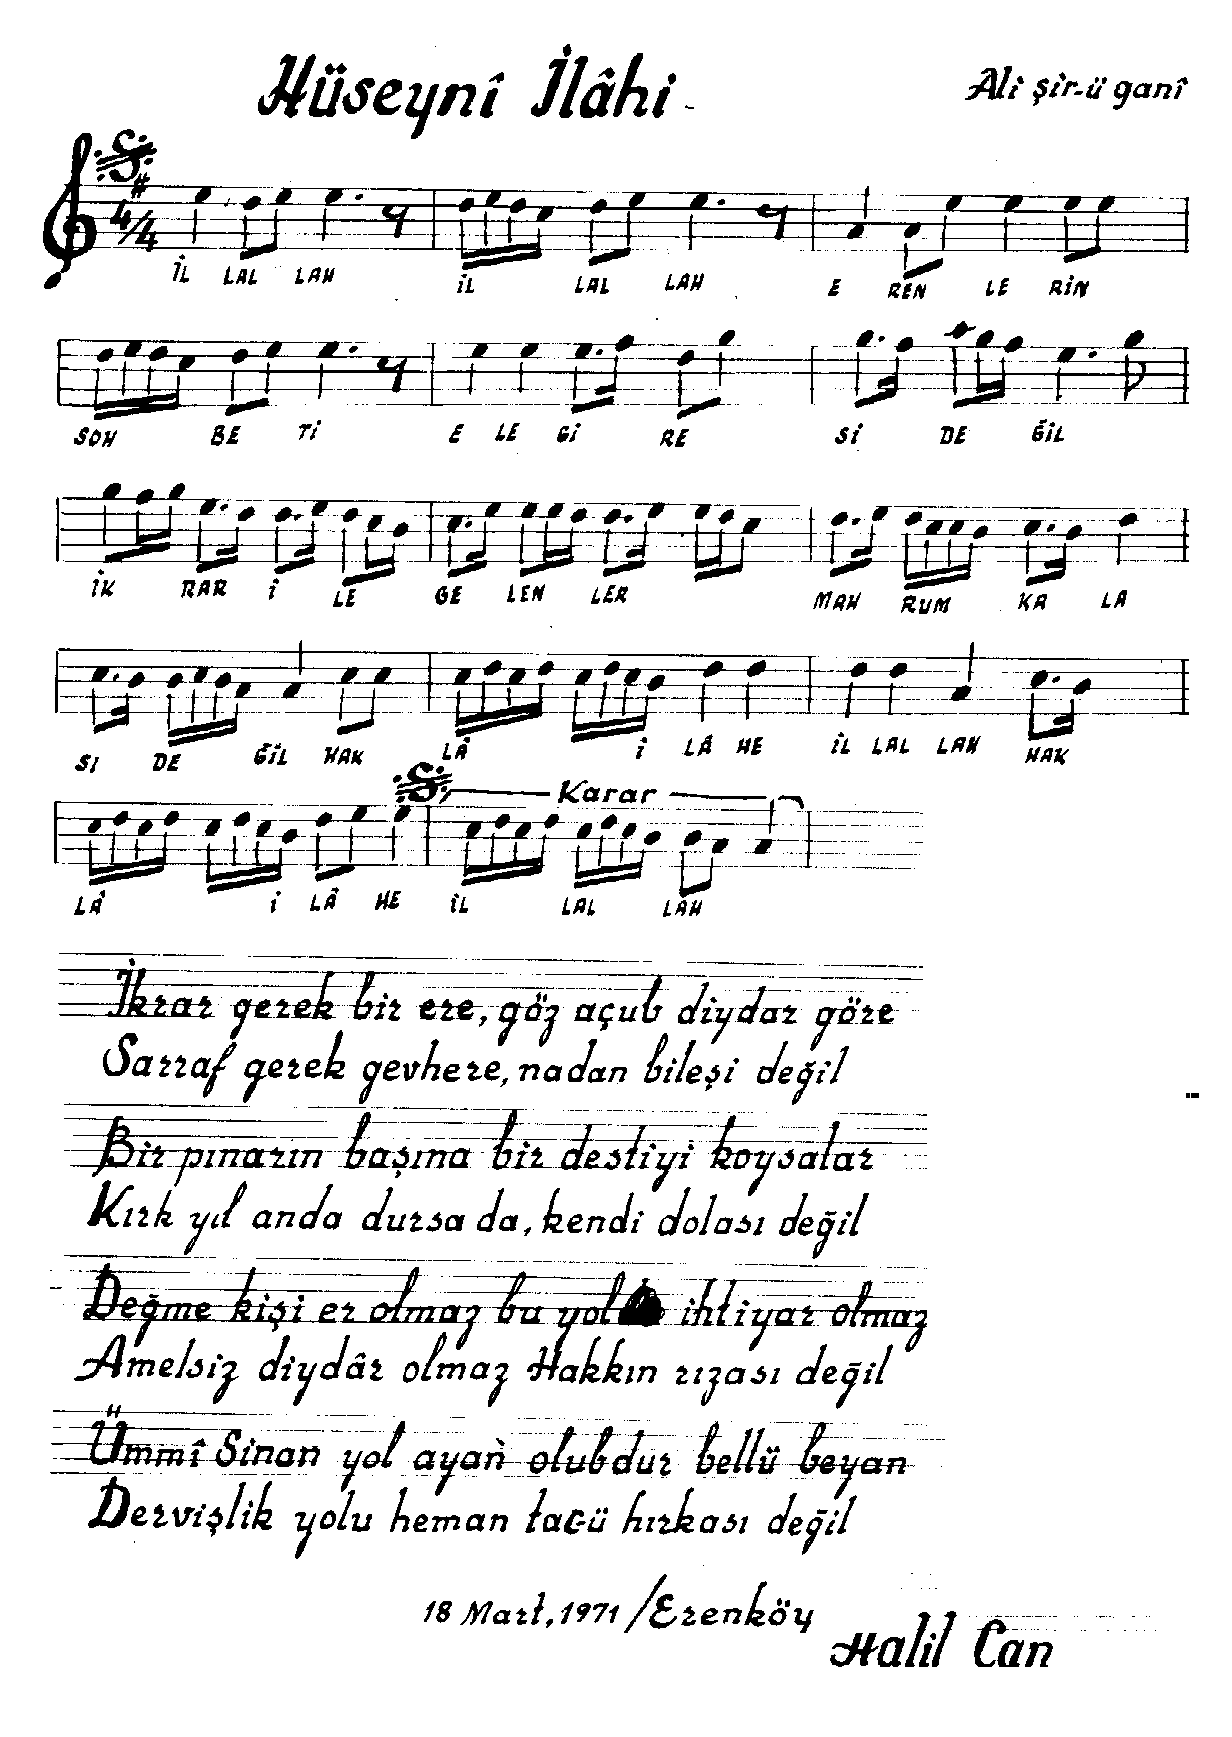 Hüseynî İlâhi
Ali şir-ü ganî
4/4
İL LAL LAH İL LAL LAH E REN LE RİN
SOH BE Tİ E LE Gİ RE Sİ DE ĞİL
İK RAR İ LE GE LEN LER MAH RUM KA LA
SI DE ĞİL HAK LÂ İ LÂ HE İL LAL LAH HAK
Karar
LÂ İ LÂ HE İL LAL LAH
İkrar gerek bir ere, göz açub diydar göre
Sarraf gerek gevhere, nadan bileşi değil
Bir pınarın başına bir destiyi koysalar
Kırk yıl anda dursa da, kendi dolası değil
Değme kişi er olmaz bu yol ihtiyar olmaz
Amelsiz diydâr olmaz Hakkın rızası değil
Ümmî Sinan yol ayan olubdur bellü beyan
Dervişlik yolu heman tacü hırkası değil
18 Mart, 1971 / Erenköy
Halil Can